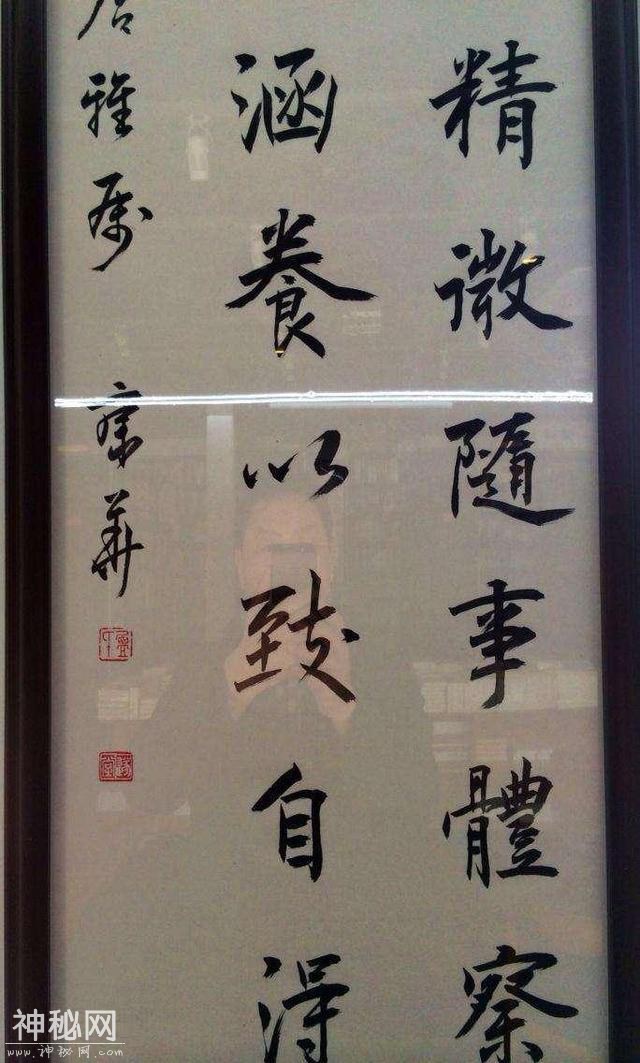 精微隨事體察
涵養以致自得
雅屬
神秘网
www.神秘网.com